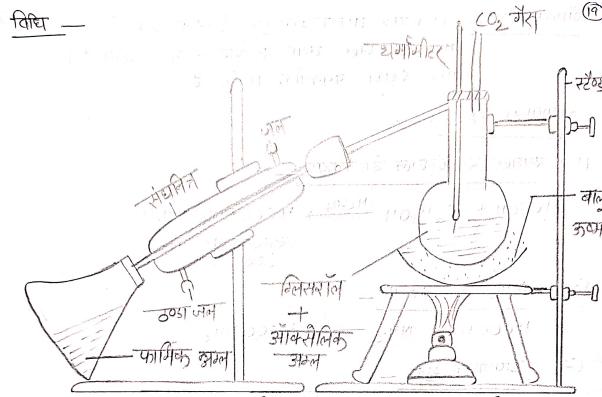 विधि —
CO₂ गैस
19
थर्मामीटर
स्टैण्ड
जल
संघनित्र
बालू
ऊष्म
ठण्डा जल
ग्लिसरॉल
+
ऑक्सेलिक
अम्ल
फार्मिक अम्ल